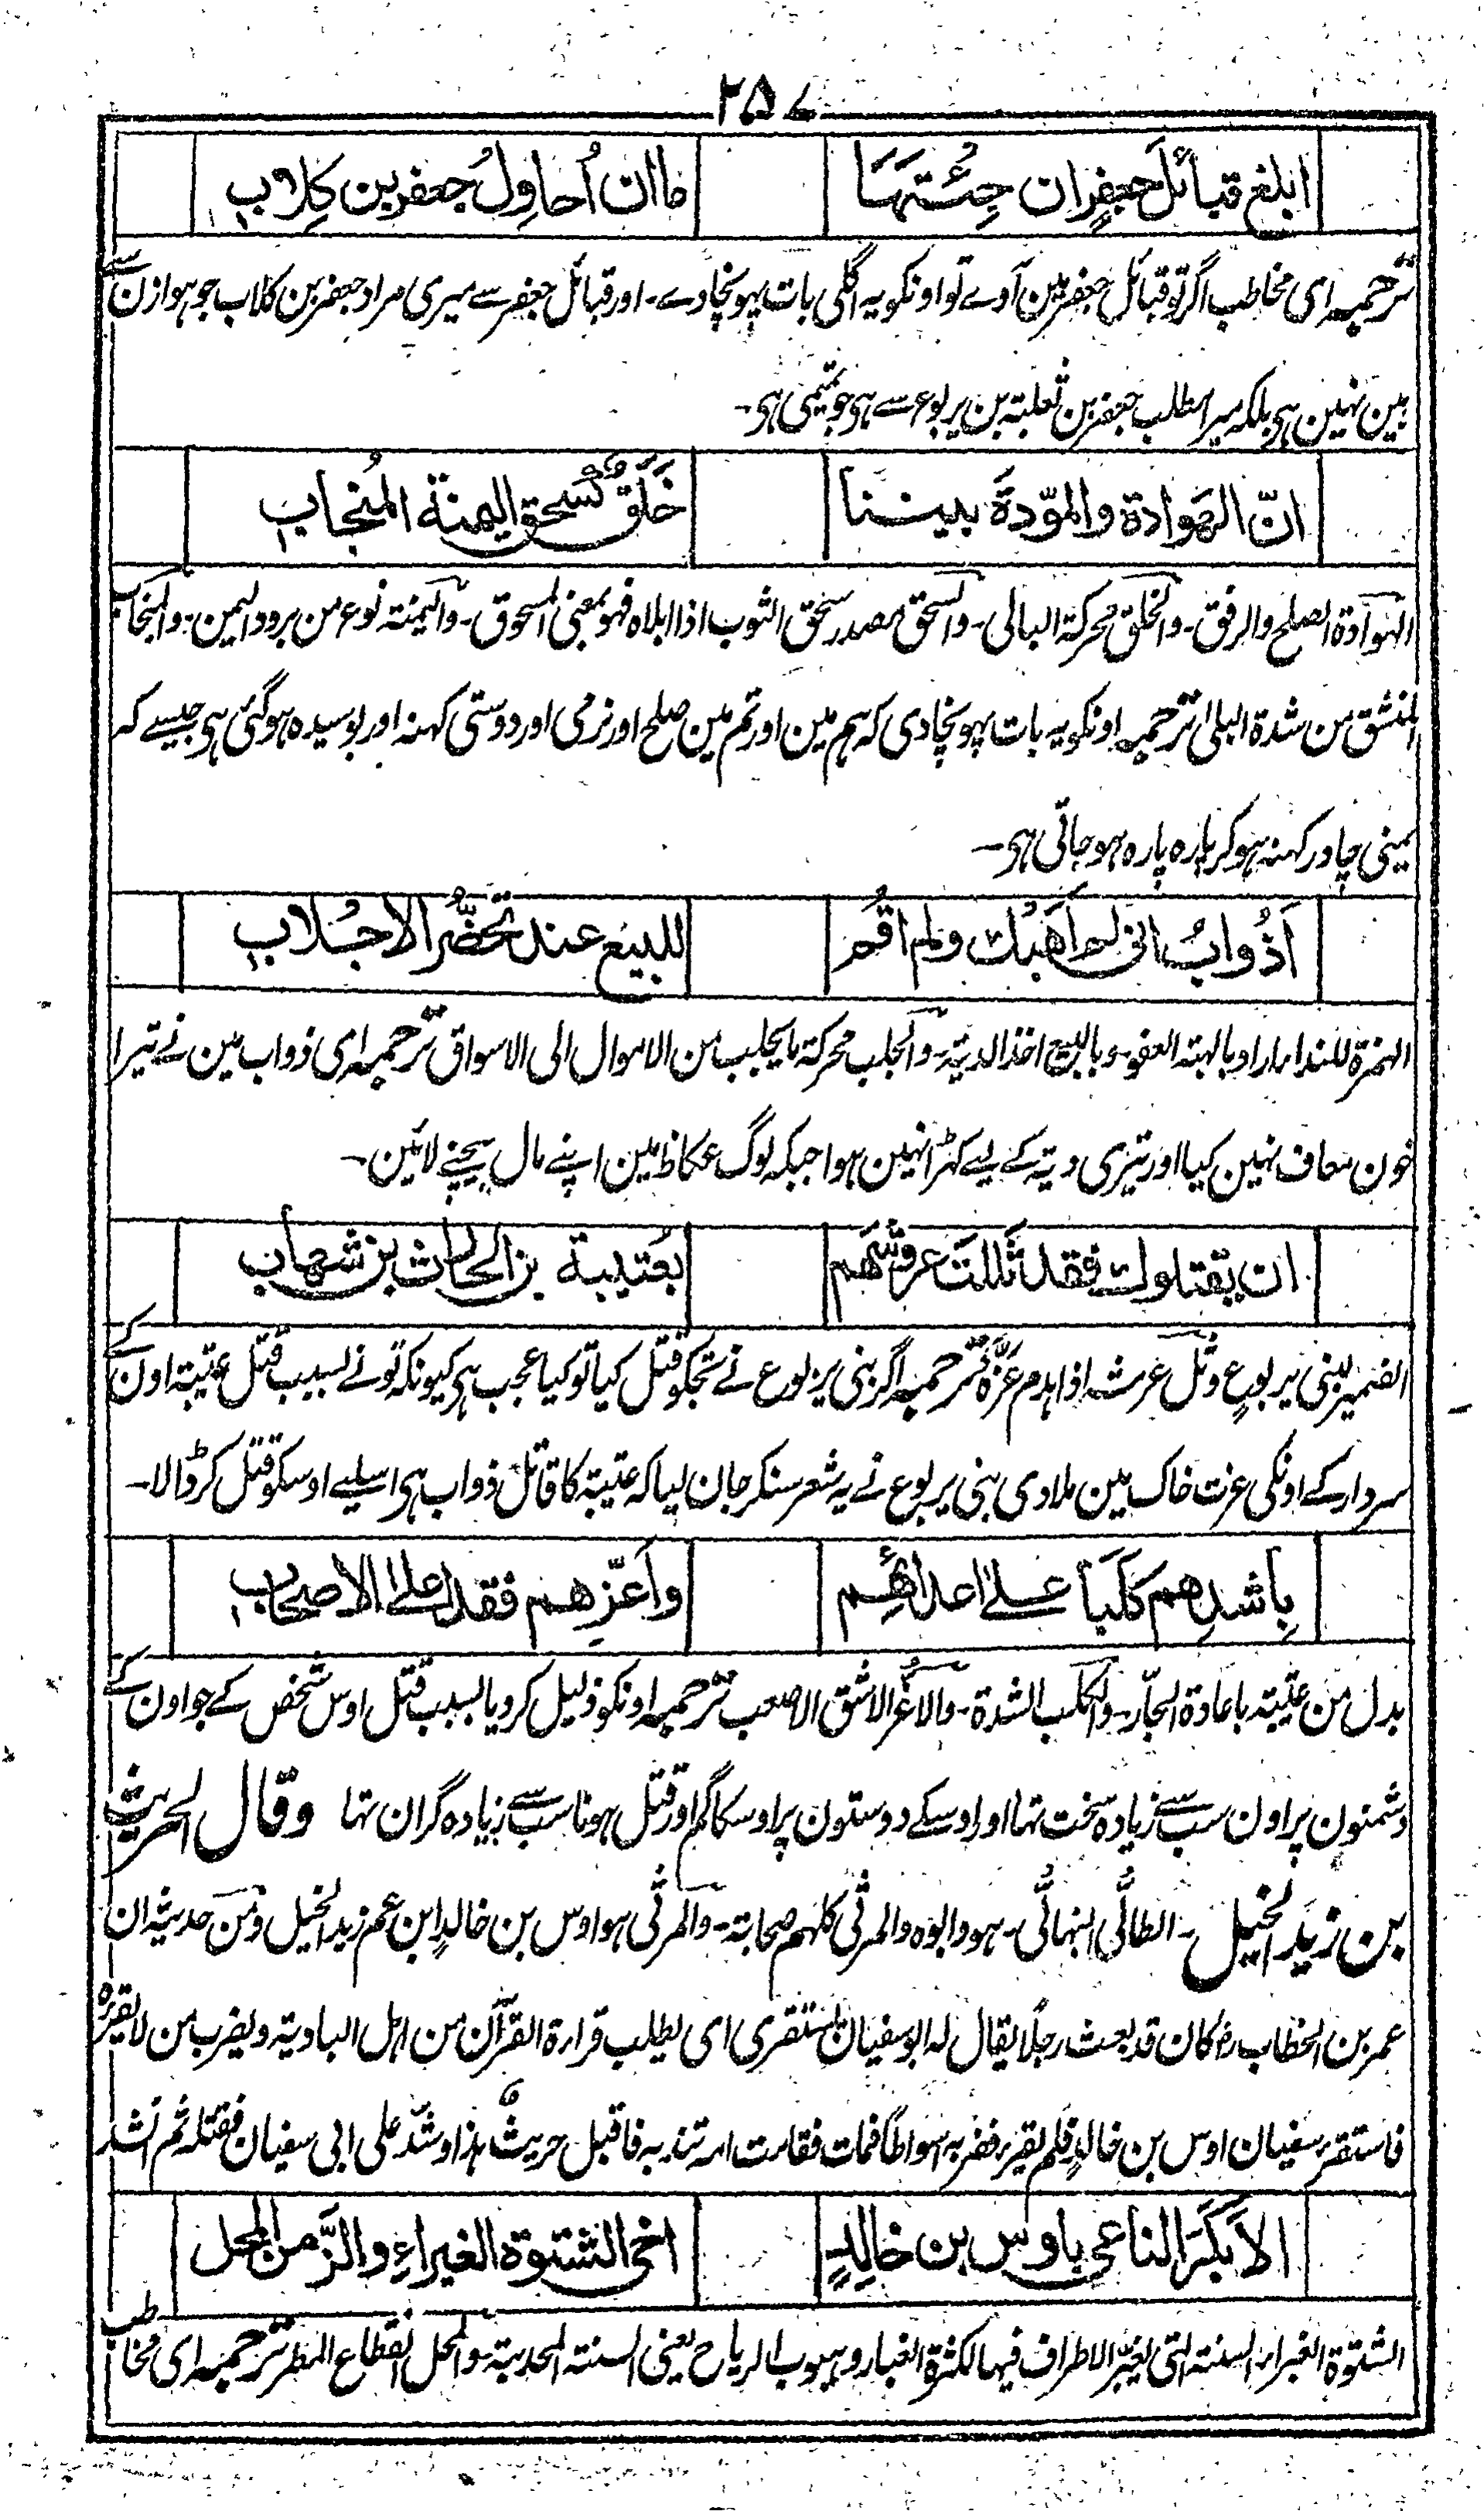 ۲۵۷
ابلغ قبائل جعفر ان جئتها ما ان اُحاوِلُ جعفر بن کِلاب
ترجمہ ای مخاطب اگر تو قبائل جعفر مین آوے تو اونکو یہ اگلی بات پہونچادے۔ اور قبائل جعفر سے میری مراد جعفر بن کلاب جو ہوازن سے
ہین نہین ہی بلکہ میرا مطلب جعفر بن ثعلبتہ بن یربوع سے ہی جو تمیمی ہی۔
انّ الهوادة والموّدةَ بیننا خَلَقٌ کسَحقِ الیمنة المُنجاب
الہوادۃ الصلح والرفق۔ والخلق محرکۃ البالی۔ والسحق مصدر سحق الثوب اذا ابلاہ فہو بمعنی المسحوق۔ والیمنتہ نوع من برود الیمن۔ والمنجاب
المنشق من شدۃ البلی ترجمہ اونکو یہ بات پہونچادی کہ ہم مین اور تم مین صلح اور نرمی اور دوستی کہنہ اور بوسیدہ ہوگئی ہی جیسے کہ
یمنی چادر کہنہ ہوکر پارہ پارہ ہوجاتی ہی۔
اَذُوابُ انی لم اَهَبْك ولم اقُم للبیع عند تحضُّر الاجلاب
الہمزۃ للنداء اراد بالہبتہ العفو۔ وبالبیع اخذ الدیتہ۔ والجلب محرکۃ مایجلب من الاموال الی الاسواق ترجمہ ای ذواب مین نے تیرا
خون معاف نہین کیا اور تیری دیتہ کے لیے کہڑا نہین ہوا جبکہ لوگ عکاظ مین اپنے مال بیچنے لائین۔
ان یقتلوك فقد ثللتَ عروشَهم بعُتیبة بن الحارث بن شهاب
الضمیر لبنی یربوع وثل عرشہ اذا ہدم عزّہ ترجمہ اگر بنی یربوع نے تجکو قتل کیا تو کیا عجب ہی کیونکہ تونے بسبب قتل عتیبتہ اون کے
سردار کے اونکی عزت خاک مین ملادی بنی یربوع نے یہ شعر سنکر جان لیا کہ عتیبۃ کا قاتل ذواب ہی اسلیے اوسکو قتل کر ڈالا۔
بِاَشدِهم کلَبًا علےٰ اعدائهم واَعَزِّهم فقدا علی الاصحاب
بدل من عتیبتہ باعادۃ الجارّ۔ والکلب الشدۃ۔ والاعزُّ الاشق الاصعب ترجمہ اونکو ذلیل کردیا بسبب قتل اوس شخص کے جو اون کے
دشمنون پر اون سب سے زیادہ سخت تہا اور اوسکے دوستون پر اوسکا گم اور قتل ہونا سب سے زیادہ گران تہا وقال الحریث
بن زید الخیل۔ الطائی النبہانی۔ ہو وابوہ والمرثی کلہم صحابتہ۔ والمرثی ہو اوس بن خالدٍ ابن عم زید الخیل ومن حدیثہ ان
عمر بن الخطاب رض کان قد بعث رجلًا یقال لہ ابو سفیان یستقری ای یطلب قراءۃ القرآن من اہل البادیتہ ویضرب من لایقرء
فاستقرء سفیان اوس بن خالدٍ فلم یقرء فضربہ اسواطًا فمات فقامت امہ تندبہ فاقبل حریثٌ ہذا وشدّ علی ابی سفیان فقتلہ ثم انشد
الا بَکَرَ الناعی باوس بن خالِدٍ اخی الشتوة الغبراءِ والزَّمن المحل
الشتوۃ الغبراء السنتہ التی تغبّر الاطراف فیہا لکثرۃ الغبار وہبوب الریاح یعنی السنتہ المجدبتہ۔ والمحل انقطاع المطر ترجمہ ای مخاطب